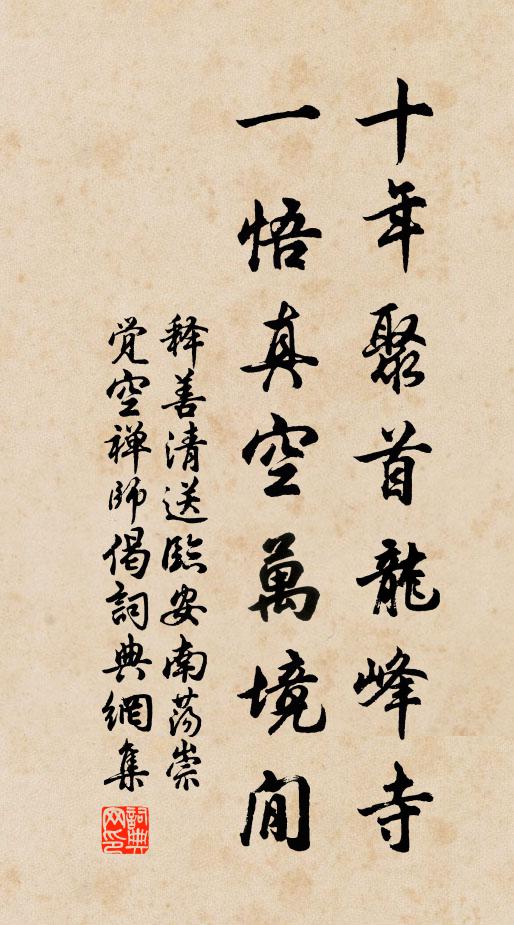 十年聚首龍峰寺
一悟真空萬境閒
釋善清送臨安南蕩崇
覺空禪師偈詞典網集
詞典
网印